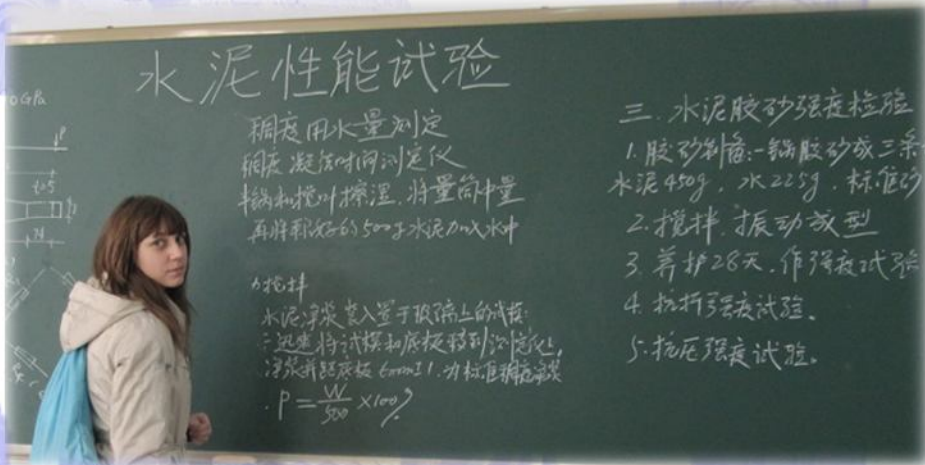 水泥性能试验
0GPa
稠度用水量测定
稠度凝结时间测定仪
锅和搅 擦湿，将量筒中量
再将 好的500g水泥加入水中
搅拌
水泥净浆装入置于玻璃上的试模
迅速将试模和底板移到 定仪上，
净浆并距底板6mm±1，为标准稠度净浆
P=W/500×100%
三、水泥胶砂强度检验
1.胶砂制备：一锅胶砂成三条
水泥450g，水225g，标准砂
2.搅拌，振动成型
3.养护28天，作强度试验
4.抗折强度试验。
5.抗压强度试验。